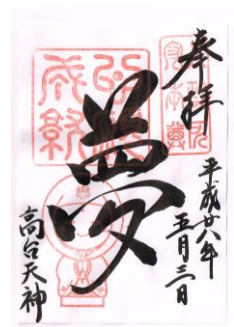 奉拝
平成廿八年
五月三日
夢
高台天神